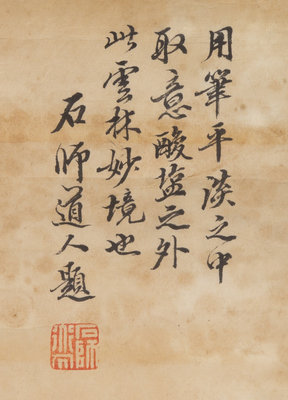 用筆平淡之中
取意酸塩之外
此雲林妙境也
石師道人題